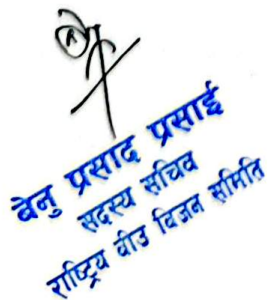 बेनु प्रसाद प्रसाई
सदस्य सचिव
राष्ट्रिय वीउ विजन समिति